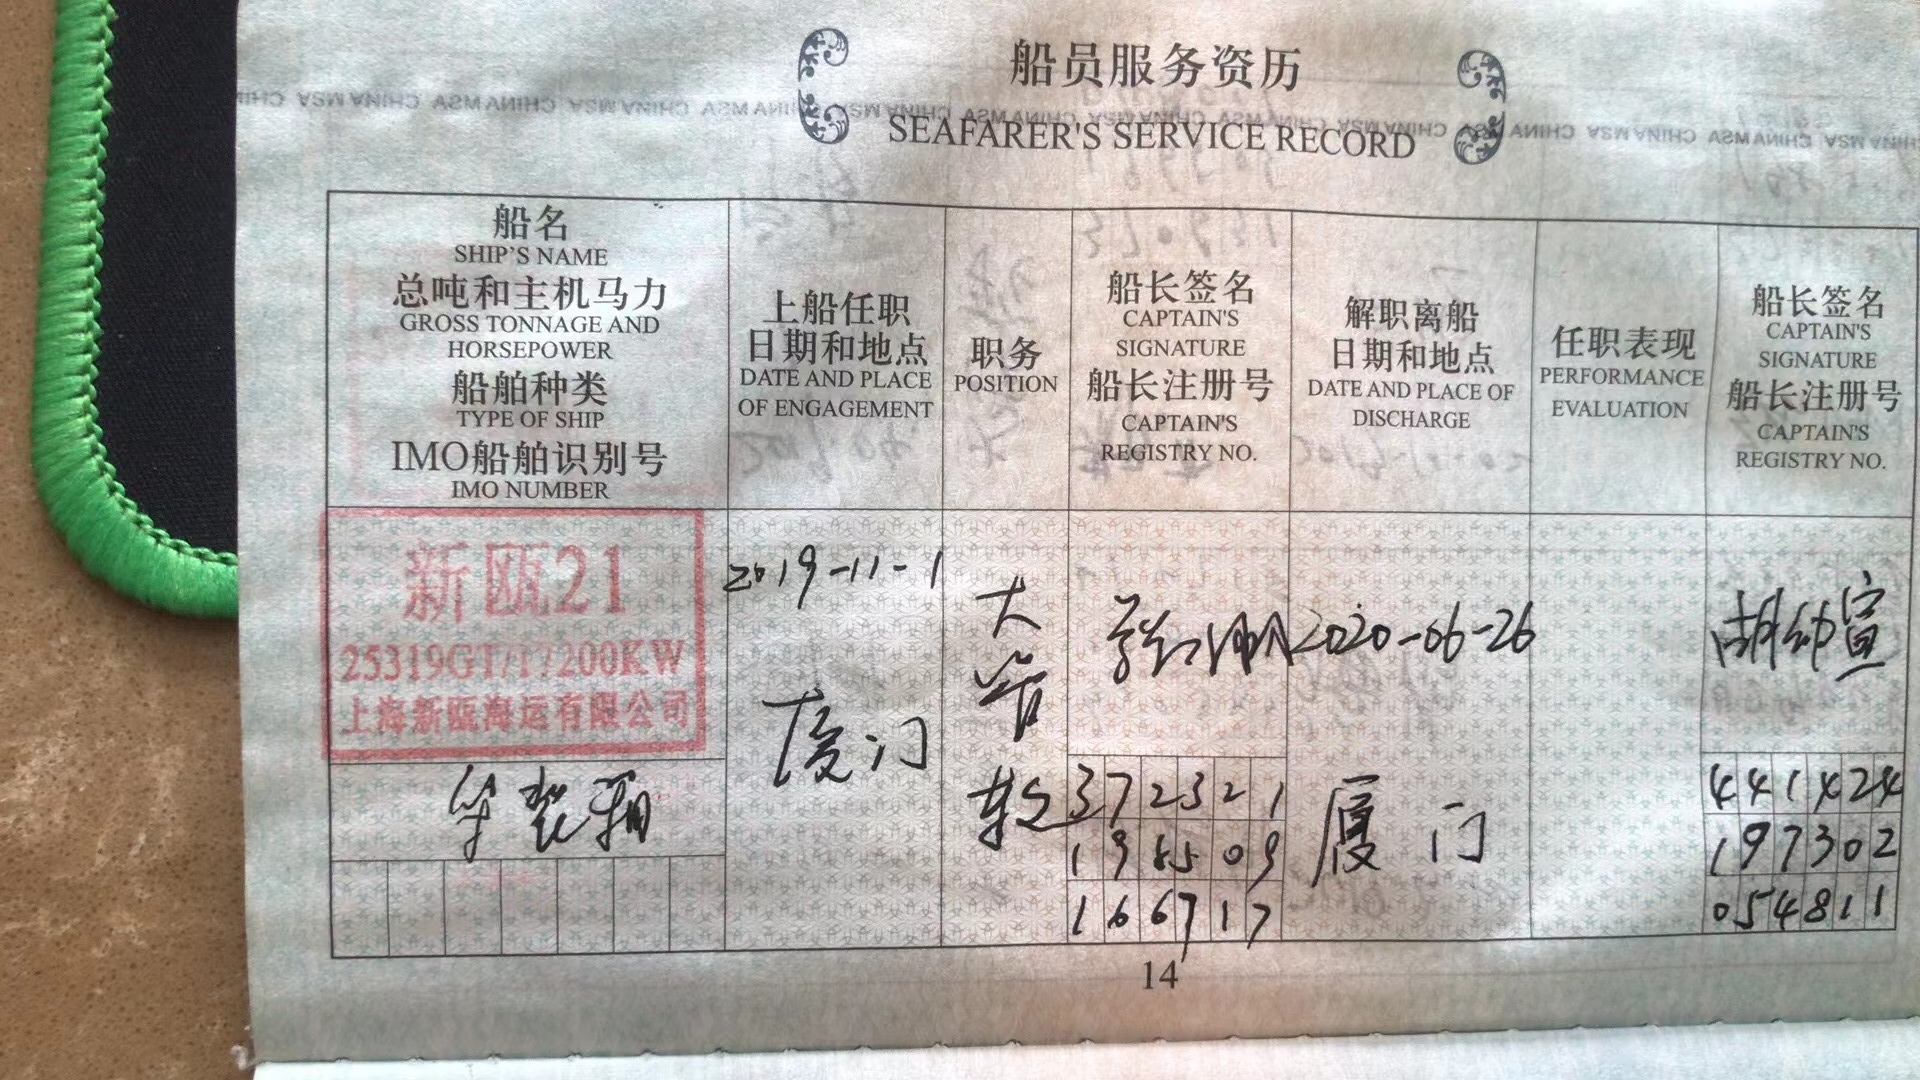 船员服务资历
CHINA MSA CHINA MSA CHINA MSA CHINA MSA CHINA MSA CHINA MSA CHINA MSA
SEAFARER'S SERVICE RECORD
船名
SHIP'S NAME
总吨和主机马力
GROSS TONNAGE AND
HORSEPOWER
船舶种类
TYPE OF SHIP
IMO船舶识别号
IMO NUMBER
上船任职
日期和地点
DATE AND PLACE
OF ENGAGEMENT
职务
POSITION
船长签名
CAPTAIN'S
SIGNATURE
船长注册号
CAPTAIN'S
REGISTRY NO.
解职离船
日期和地点
DATE AND PLACE OF
DISCHARGE
任职表现
PERFORMANCE
EVALUATION
船长签名
CAPTAIN'S
SIGNATURE
船长注册号
CAPTAIN'S
REGISTRY NO.
新瓯21
25319GT/17200KW
上海新瓯海运有限公司
2019-11-1
厦门
大
管
轮
372321
198509
166717
2020-06-26
厦门
胡帅宣
441424
197302
054811
14